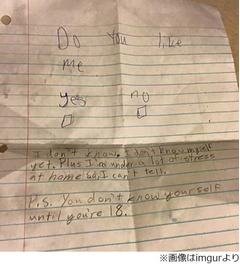 Do You like
me
yes no
I don't know. I don't know myself
yet. Plus I'm under a lot of stress
at home so, I can't tell.
P.S. You don't know yourself
until you're 18.
※画像はimgurより